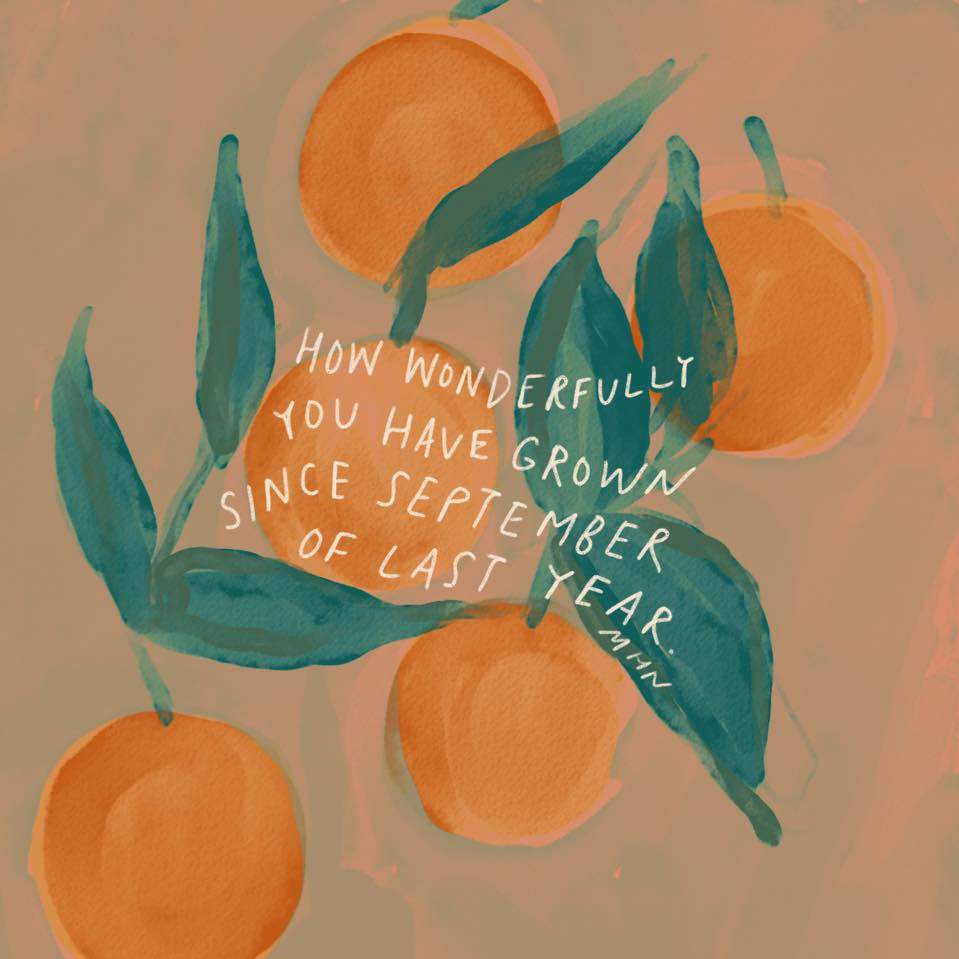 HOW WONDERFULLY
YOU HAVE GROWN
SINCE SEPTEMBER
OF LAST YEAR.
MHN